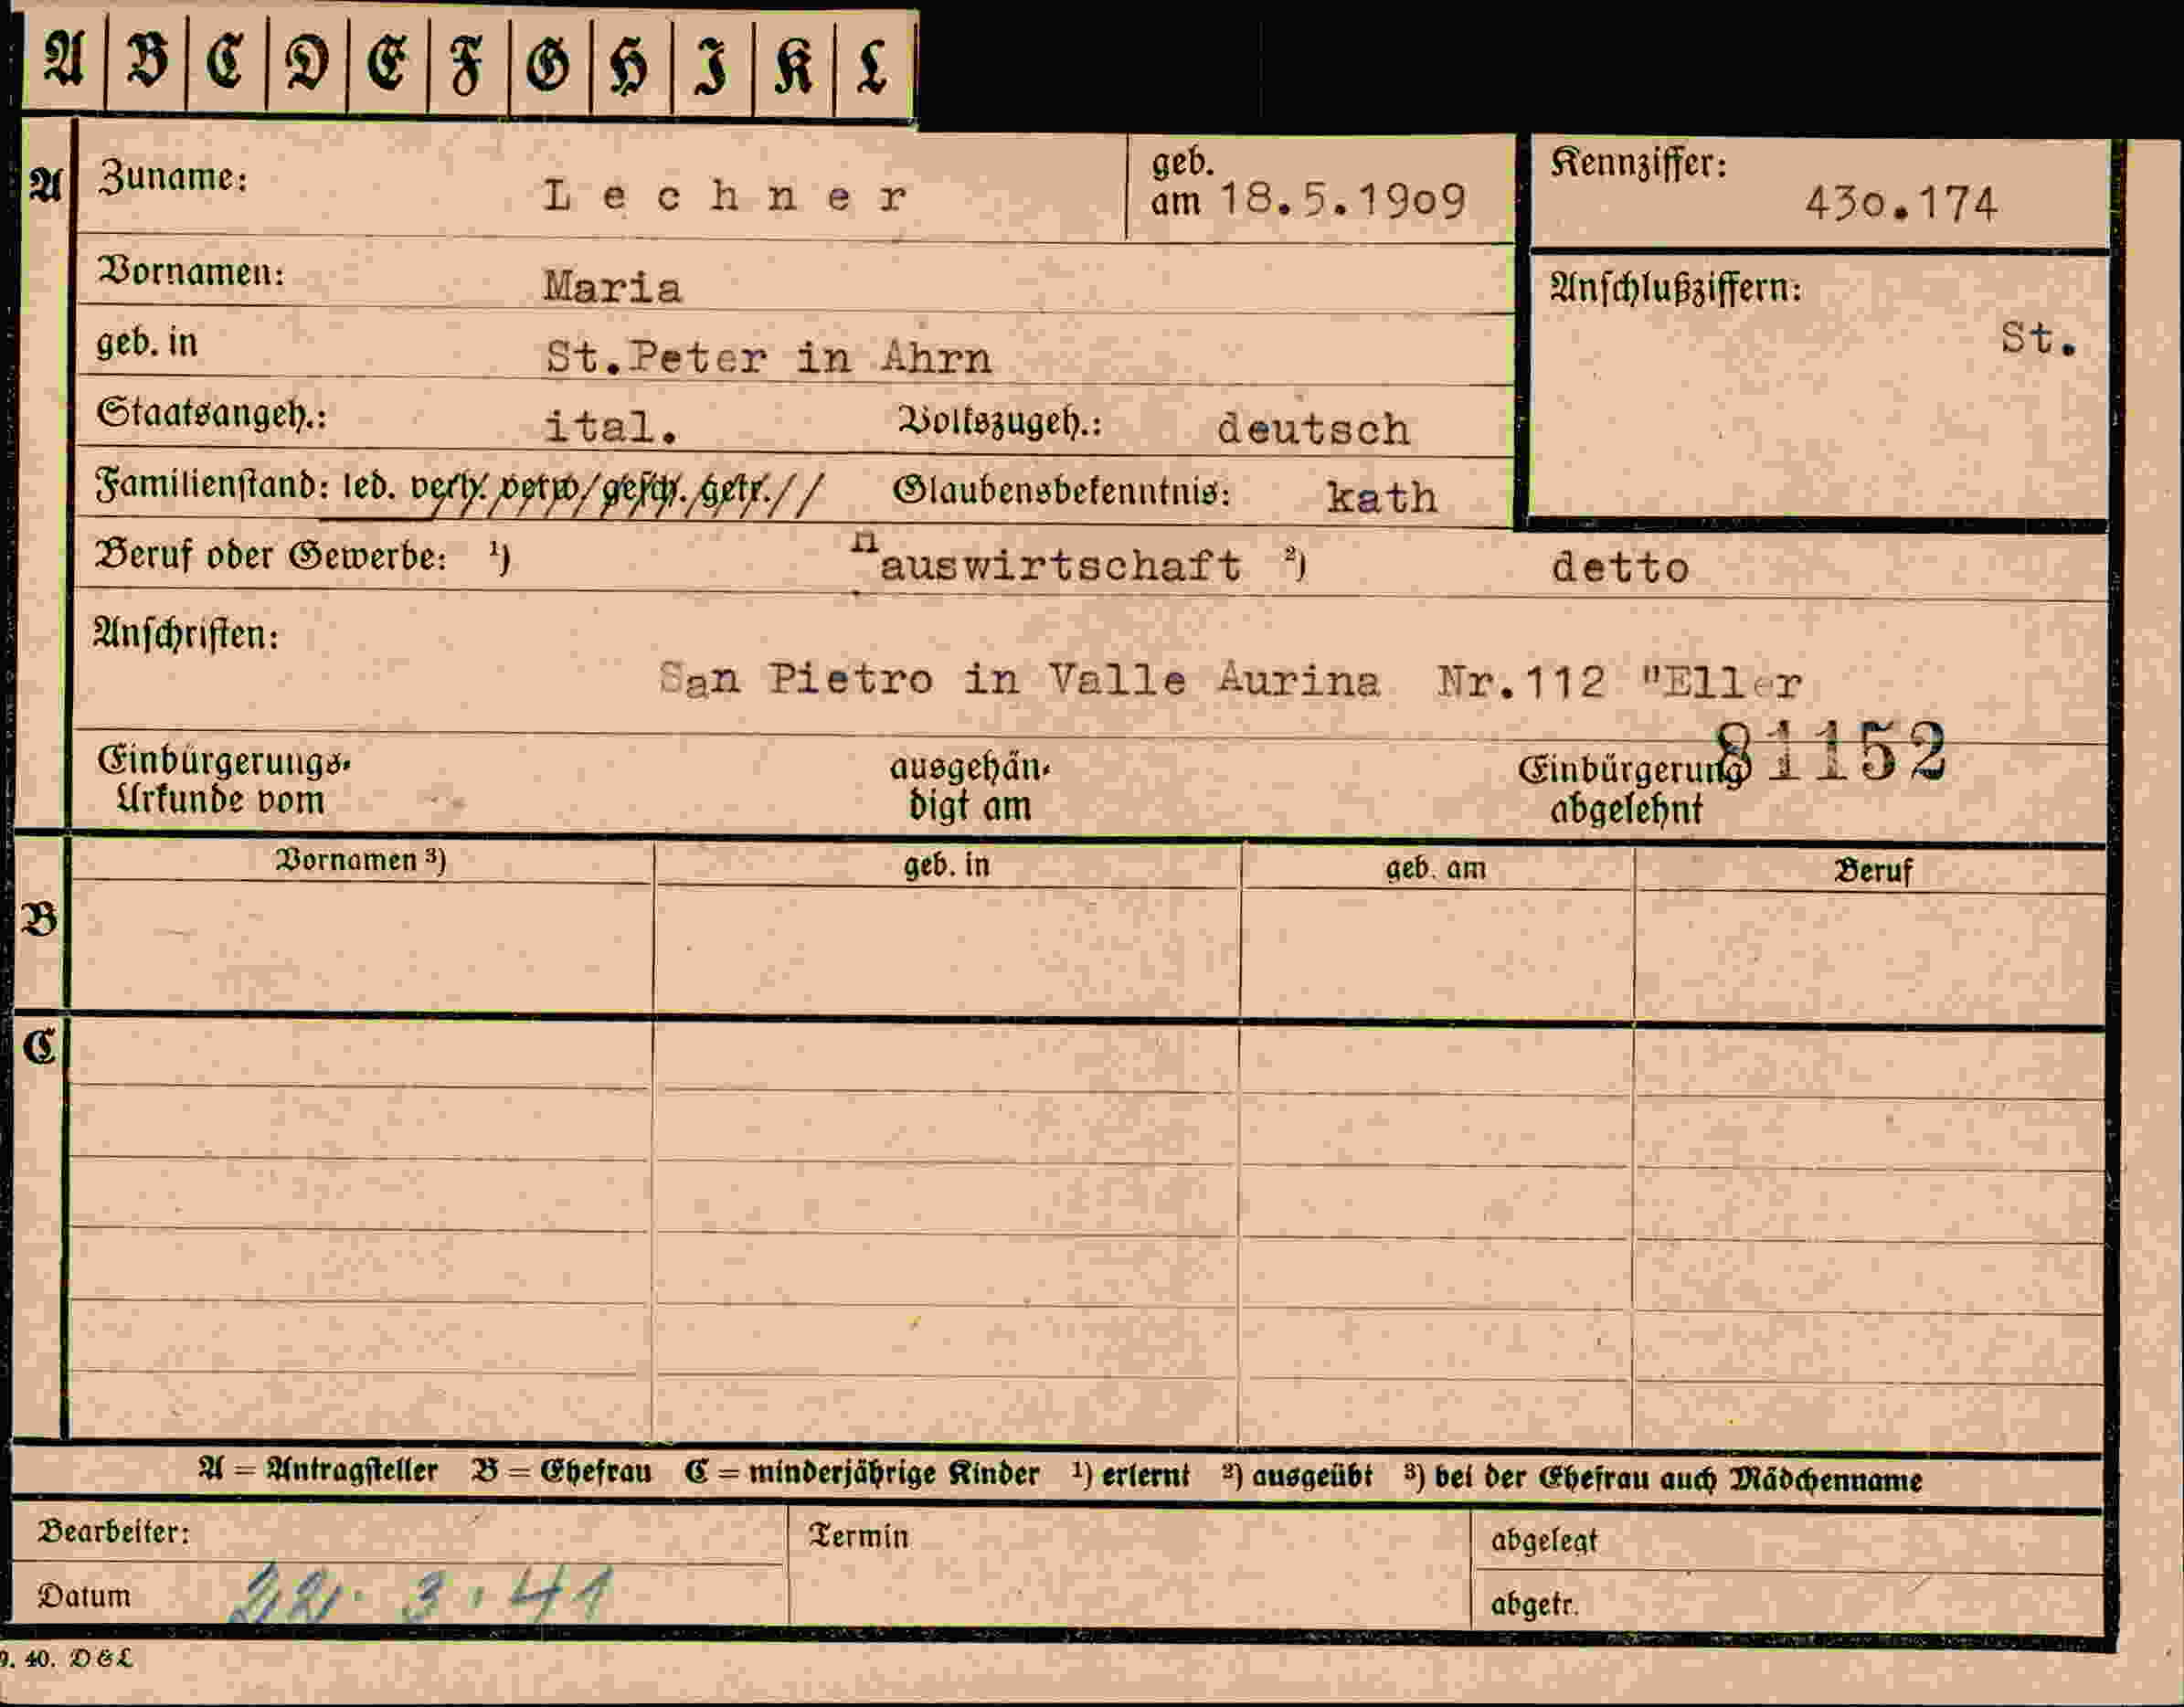 A B C D E F G H I K L
A Zuname: Lechner geb. am 18.5.1909 Kennziffer: 430.174
Vornamen: Maria Anschlußziffern: St.
geb. in St.Peter in Ahrn
Staatsangeh.: ital. Volkszugeh.: deutsch
Familienstand: led. verh. verw. gesch. getr. Glaubensbekenntnis: kath
Beruf oder Gewerbe: ¹) Hauswirtschaft ²) detto
Anschriften:
San Pietro in Valle Aurina Nr.112 "Eller
81152
Einbürgerungs- ausgehän- Einbürgerung
Urkunde vom digt am abgelehnt
Vornamen ³) geb. in geb. am Beruf
B
C
A = Antragsteller B = Ehefrau C = minderjährige Kinder ¹) erlernt ²) ausgeübt ³) bei der Ehefrau auch Mädchenname
Bearbeiter: Termin abgelegt
Datum 22. 3. 41 abgetr.
9. 40. D&L